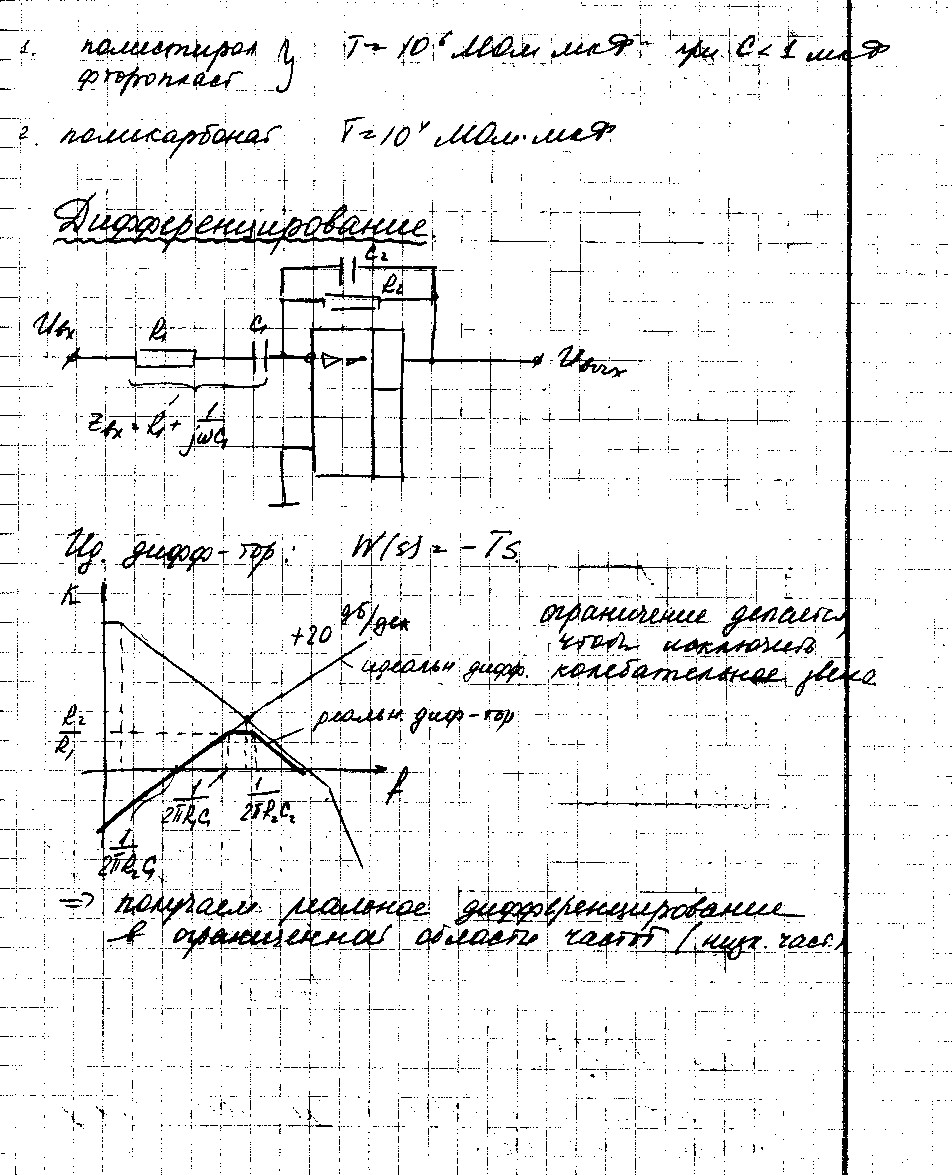 1. полистирол } T = 10⁶ МОм·мкФ при C < 1 мкФ
фторопласт
2. поликарбонат T = 10⁴ МОм·мкФ
Дифференцирование.
C₂
R₂
Uвх R₁ C₁ Uвых
Zвх = R₁ + 1/jωC₁
Ид. дифф-тор: W(s) = -Ts.
K
+20 дб/дек
ограничение делается,
чтобы исключить
идеальн дифф. колебательное звено
R₂/R₁
реальн. диф-тор
f
1/2πR₁C₁ 1/2πR₂C₂
1/2πR₂C₁
=> получаем реальное дифференцирование
в ограниченной области частот (низк. част.)